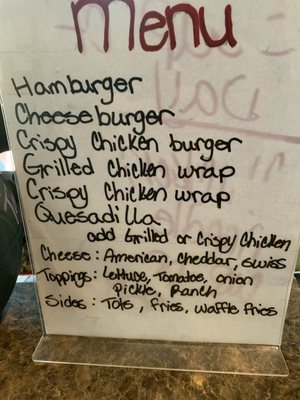 Menu
Hamburger
Cheeseburger
Crispy Chicken burger
Grilled Chicken wrap
Crispy Chicken wrap
Quesadilla
add Grilled or Crispy Chicken
Cheese: American, cheddar, swiss
Toppings: Lettuce, Tomatoe, onion
Pickle, Ranch
Sides: Tots, fries, waffle fries